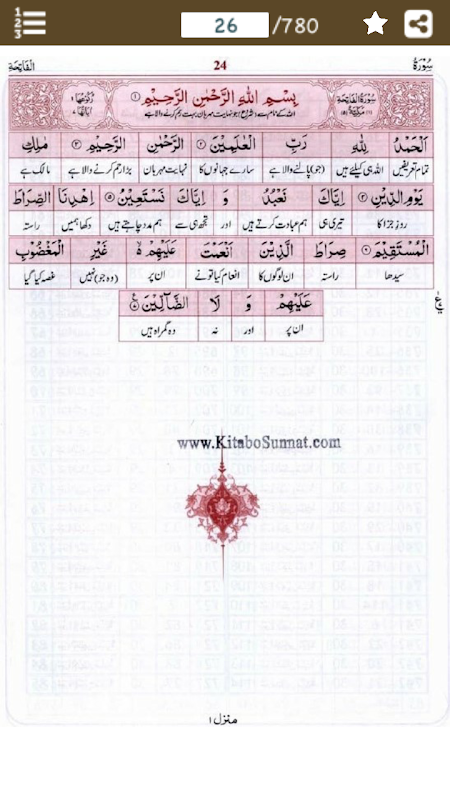 1 2 3 26 /780
سُوْرَةُ 24 الْفَاتِحَة
سُوْرَةُ الْفَاتِحَةِ بِسْمِ اللّٰهِ الرَّحْمٰنِ الرَّحِيْمِ ①
اللہ کے نام سے (شروع) جو نہایت مہربان بہت رحم کرنے والا ہے
اَلْحَمْدُ لِلّٰهِ رَبِّ الْعٰلَمِيْنَ الرَّحْمٰنِ الرَّحِيْمِ مٰلِكِ
تمام تعریفیں اللہ ہی کیلئے ہیں (جو) پالنے والا ہے سارے جہانوں کا نہایت مہربان بڑا رحم کرنے والا ہے مالک ہے
يَوْمِ الدِّيْنِ اِيَّاكَ نَعْبُدُ وَ اِيَّاكَ نَسْتَعِيْنُ اِهْدِنَا الصِّرَاطَ
روز جزا کا تیری ہی ہم عبادت کرتے ہیں اور تجھ ہی سے ہم مدد چاہتے ہیں دکھا ہمیں راستہ
الْمُسْتَقِيْمَ صِرَاطَ الَّذِيْنَ اَنْعَمْتَ عَلَيْهِمْ غَيْرِ الْمَغْضُوْبِ
سیدھا راستہ ان لوگوں کا انعام کیا تونے ان پر (وہ جو) نہیں غصہ کیا گیا
عَلَيْهِمْ وَ لَا الضَّآلِّيْنَ
ان پر اور نہ وہ گمراہ ہیں
www.KitaboSunnat.com
منزل ۱